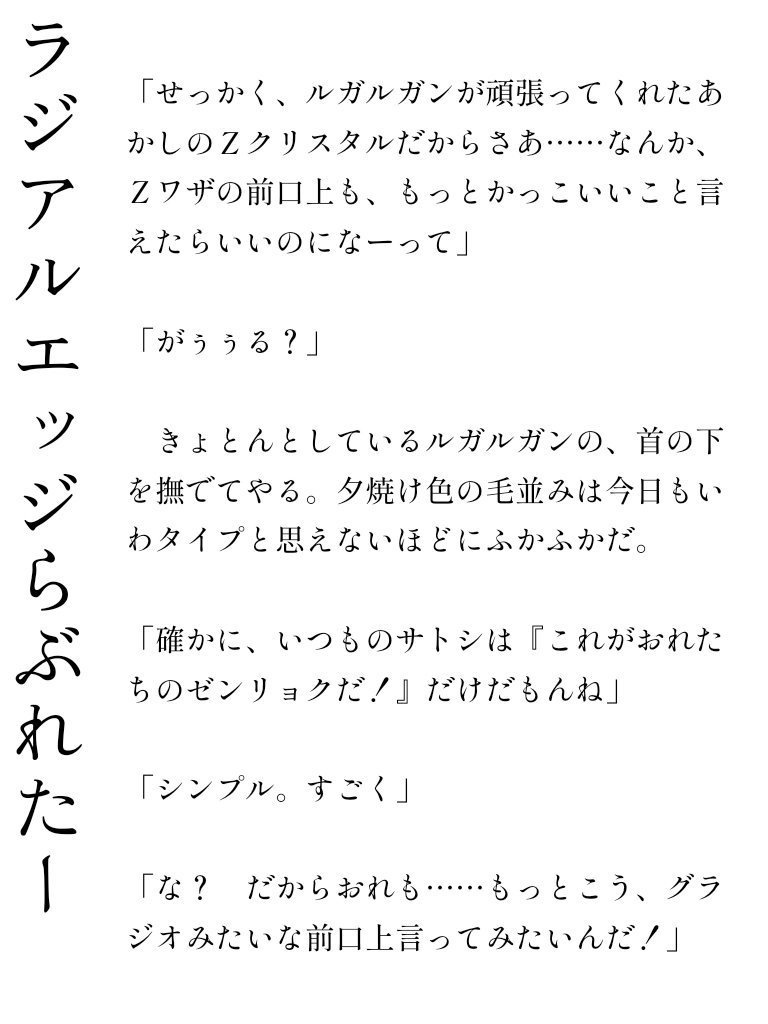 ラジアルエッジらぶれたー
「せっかく、ルガルガンが頑張ってくれたあ
かしのＺクリスタルだからさあ……なんか、
Ｚワザの前口上も、もっとかっこいいこと言
えたらいいのになーって」
「がぅぅる？」
　きょとんとしているルガルガンの、首の下
を撫でてやる。夕焼け色の毛並みは今日もい
わタイプと思えないほどにふかふかだ。
「確かに、いつものサトシは『これがおれた
ちのゼンリョクだ！』だけだもんね」
「シンプル。すごく」
「な？　だからおれも……もっとこう、グラ
ジオみたいな前口上言ってみたいんだ！」